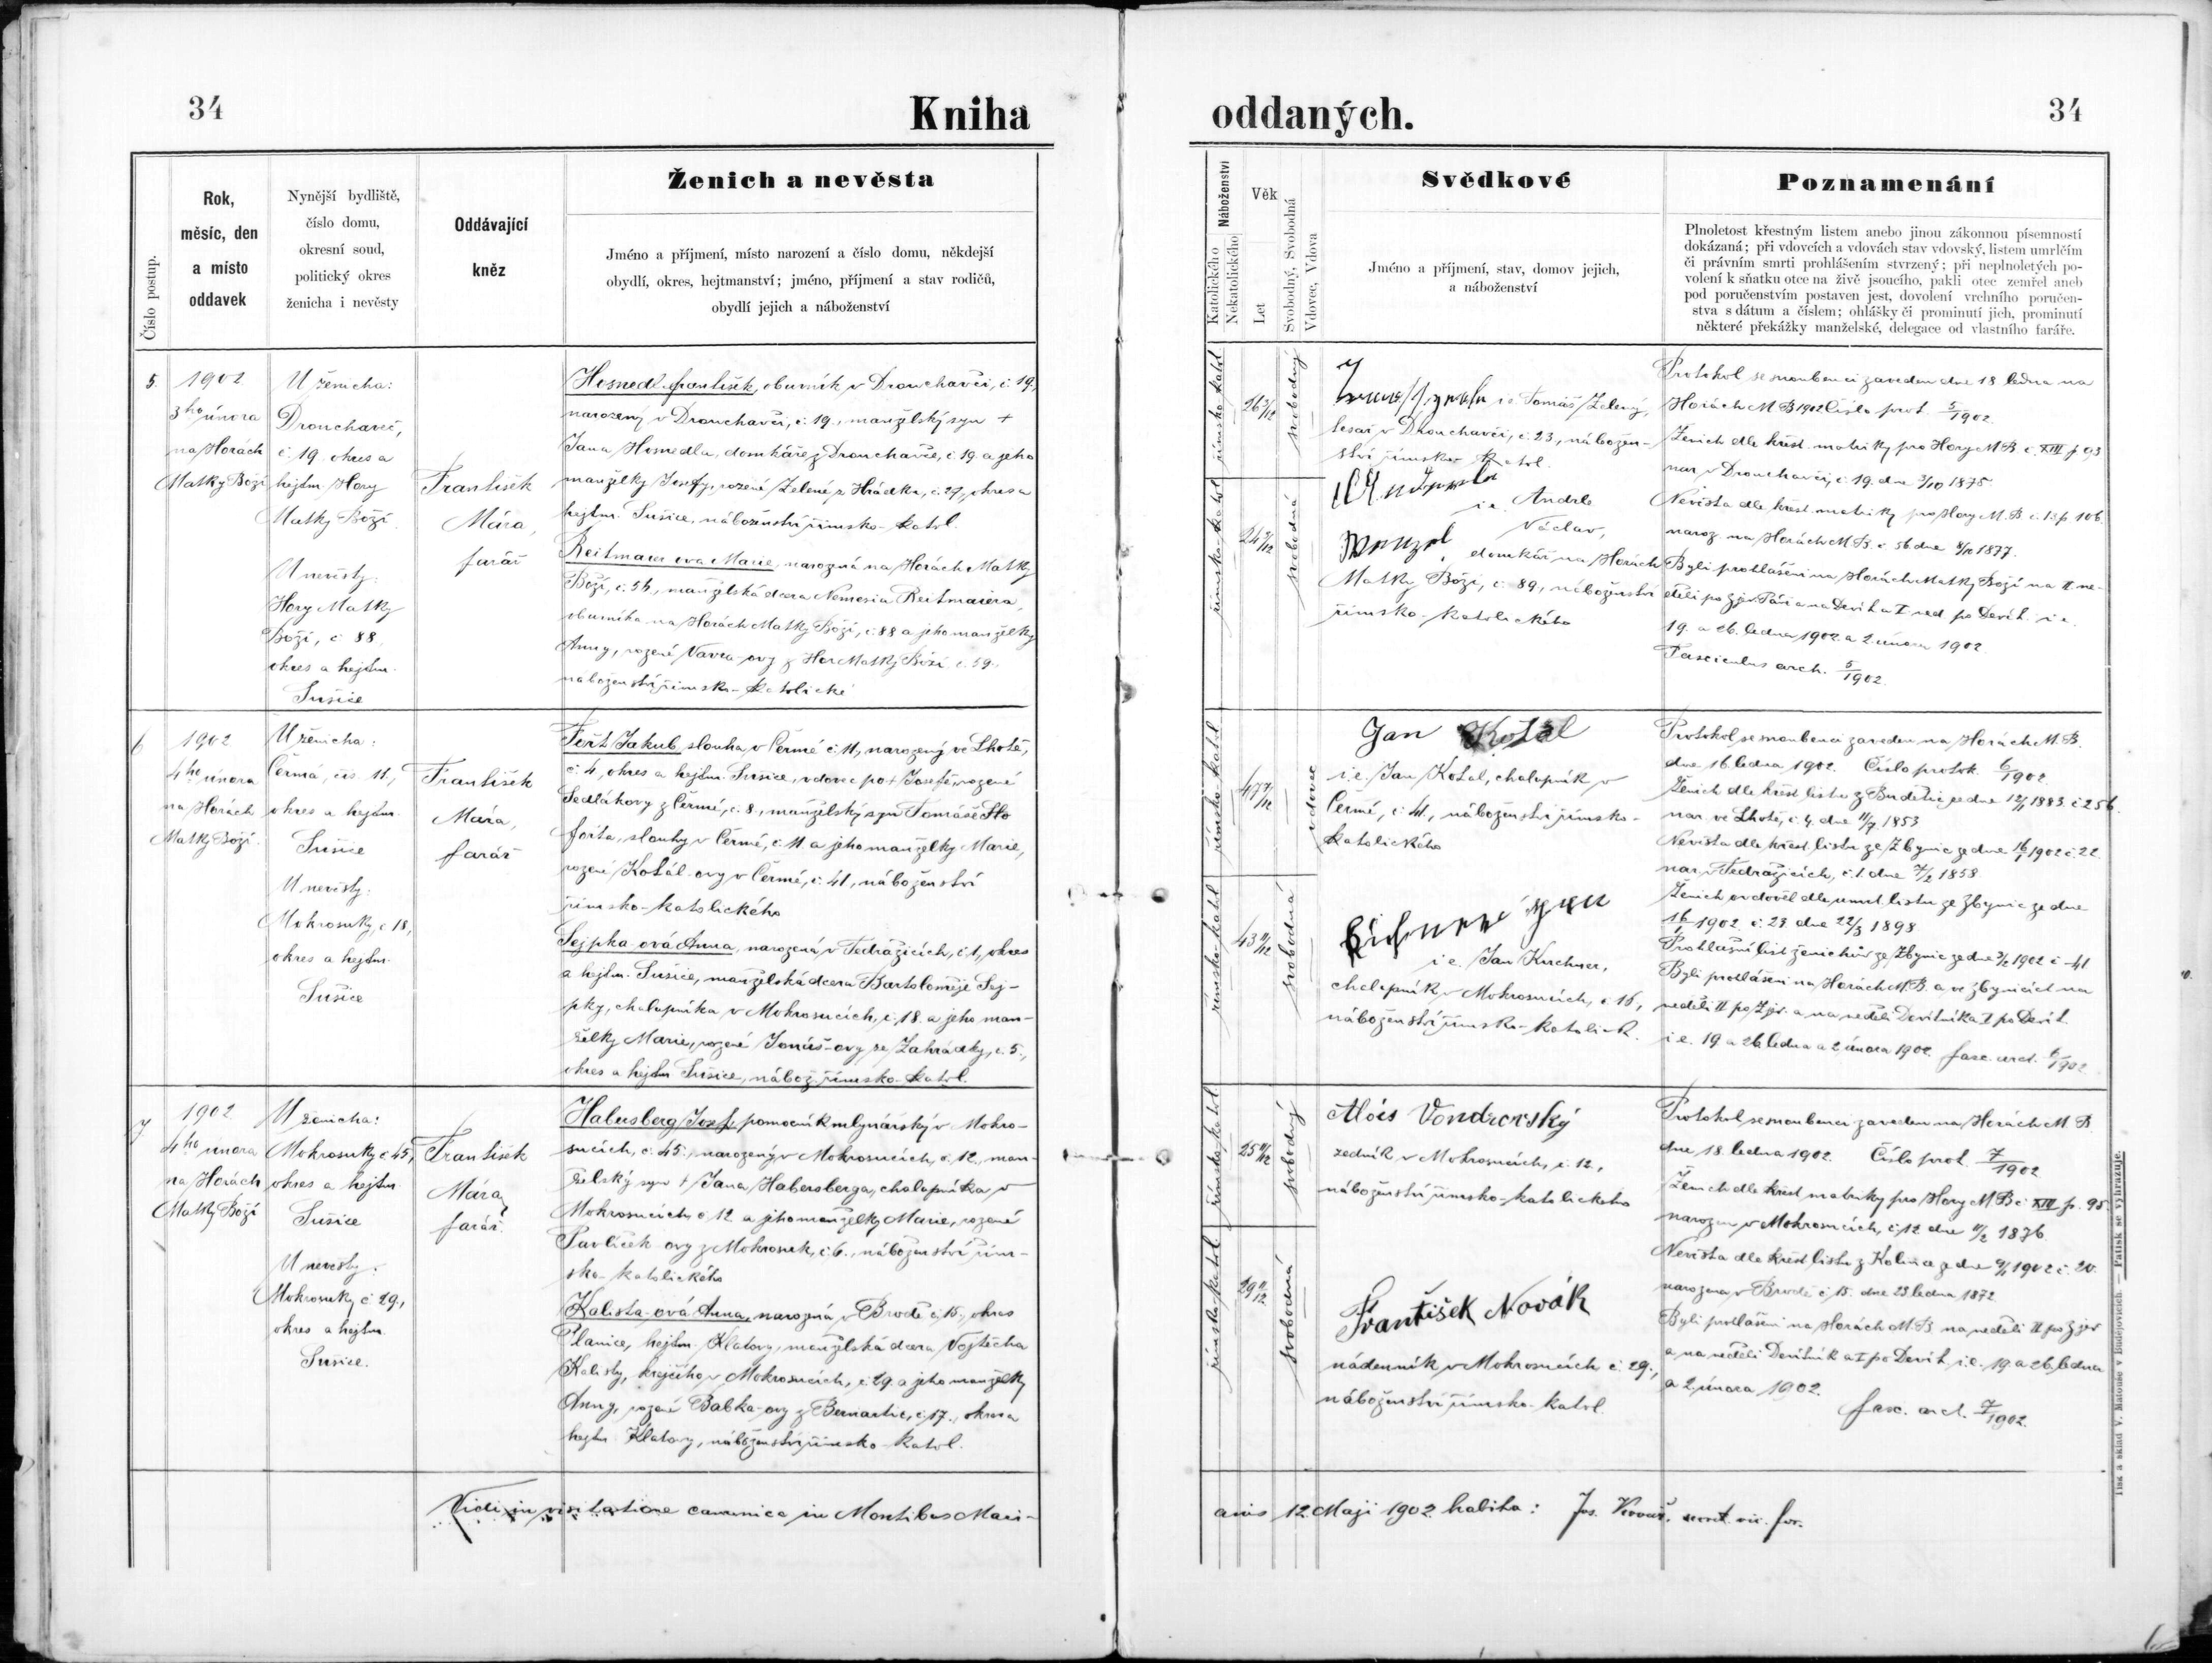 34
Kniha
Číslo postup.
Rok,
měsíc, den
a místo
oddavek
Nynější bydliště,
číslo domu,
okresní soud,
politický okres
ženicha i nevěsty
Oddávající
kněz
Ženich a nevěsta
Jméno a příjmení, místo narození a číslo domu, někdejší
obydlí, okres, hejtmanství; jméno, příjmení a stav rodičů,
obydlí jejich a náboženství
5.
1902
3ho února
na Horách
Matky Boží
U ženicha:
Drouchaveč,
č. 19. okres a
hejtm. Hory
Matky Boží.
U nevěsty:
Hory Matky
Boží, č 88,
okres a hejtm.
Sušice
František
Mára,
farář
Hosnedl František, obuvník v Drouchavči, č. 19.
narozený v Drouchavči, č. 19., manželský syn +
Jana Hosnedla, domkáře z Drouchavče, č. 19 a jeho
manželky Josefy, rozené Zelené z Hrádku, č. 27, okres a
hejtm. Sušice, náboženství římsko-katol.
Reitmaier ova Marie, narozená na Horách Matky
Boží, č. 56, manželská dcera Nemesia Reitmaiera,
obuvníka na Horách Matky Boží, č. 88 a jeho manželky
Anny, rozené Vavra-ovy z Hor Matky Boží č. 59.
náboženství římsko-katolické
6
1902
4ho února
na Horách
Matky Boží.
U ženicha:
Čermá, čís. 11,
okres a hejtm.
Sušice
U nevěsty:
Mokrosuky, č 18,
okres a hejtm.
Sušice
František
Mára,
farář
Jakub, slouha v Čermé č. 11, narozený ve Lhotě,
č. 4, okres a hejtm. Sušice, vdovec po + Josefě, rozené
Sedlákovy z Čermé, č. 8., manželský syn Tomáše
slouhy v Čermé, č. 11 a jeho manželky Marie,
rozené Kotál-ovy v Čermé, č. 41, náboženství
římsko-katolického
Sejpka-ová Anna, narozená v Tedražicích, č. 1, okres
a hejtm. Sušice, manželská dcera Bartoloměje Sej-
pky, chalupníka v Mokrosucích, č. 18. a jeho man-
želky Marie, rozené Tomáš-ovy ze Zahrádky, č. 5.,
okres a hejtm Sušice, nábož. římsko-katol.
7
1902
4ho února
na Horách
Matky Boží
U ženicha:
Mokrosuky č 45,
okres a hejtm
Sušice
U nevěsty:
Mokrosuky č 29.,
okres a hejtm.
Sušice.
František
Mára,
farář.
Habersberg Josef, pomocník mlynářský v Mokro-
sucích, č. 45., narozený v Mokrosucích, č. 12., man-
želský syn + Jana Habersberga, chalupníka v
Mokrosucích, č 12 a jeho manželky Marie, rozené
Pavlíček-ovy z Mokrosuk, č. 6., náboženství řím-
sko-katolického
Kalista-ová Anna, narozená v Brodě č. 15., okres
Planice, hejtm. Klatovy, manželská dcera Vojtěcha
Kalisty, krejčího v Mokrosucích, č. 29. a jeho manželky
Anny, rozené Babka-ovy z Bernartic, č. 17., okres a
hejtm Klatovy, náboženství římsko-katol.
Vidi in visitatione canonica in Montibus Mari-
oddaných.
34
Náboženství
Katolického
Nekatolického
Věk
Let
Svobodný, Svobodná
Vdovec, Vdova
Svědkové
Jméno a příjmení, stav, domov jejich,
a náboženství
Poznamenání
Plnoletost křestným listem anebo jinou zákonnou písemností
dokázaná; při vdovcích a vdovách stav vdovský, listem umrlčím
či právním smrti prohlášením stvrzený; při neplnoletých po-
volení k sňatku otce na živě jsoucího, pakli otec zemřel aneb
pod poručenstvím postaven jest, dovolení vrchního poručen-
stva s dátum a číslem; ohlášky či prominutí jich, prominutí
některé překážky manželské, delegace od vlastního faráře.
římsko katol
26 3/12
svobodný
i.e. Tomáš Zelený,
tesař v Drouchavči, č. 23, nábožen-
ství římsko-katol.
i.e. Andrle
Václav,
Wenzel, domkář na Horách
Matky Boží, č. 89, náboženství
římsko-katolického
římsko-katol
svobodná
Protokol se snoubenci zaveden dne 18 ledna na
Horách M B 1902 Číslo prot. 5/1902.
Ženich dle křest. matriky pro Hory M B. č. XIII p 93
nar. v Drouchavči, č. 19. dne 3/10 1875.
Nevěsta dle křest. matriky pro Hory M. B. č. p 106.
naroz na Horách M B. č 56. dne 1877.
Byli prohlášeni na Horách Matky Boží na II ne-
děli po zjev. Páně a na Devít. a I. ned po Devít. i. e.
19. a 26. ledna 1902. a 2. února 1902
Fasciculus arch. 5/1902.
římsko-katol
vdovec
Jan Kotál
i.e. Jan Kotal, chalupník v
Čermé, č. 41., náboženství římsko-
katolického
římsko-katol
43 11/12
svobodná
i.e. Jan Kirchner,
chalupník v Mokrosucích, č 16,
náboženství římsko-katolick.
Protokol se snoubenci zaveden na Horách M. B.
dne 16. ledna 1902. Číslo protok. 6/1902.
Ženich dle křest listu z Budětic ze dne 1883. č 256.
nar. ve Lhotě, č. 4. dne 11/7 1853
Nevěsta dle křest. listu ze Zbynic ze dne 16/1 1902 č. 22.
nar. v Tedražicích, č. 1. dne 1858
Ženich ovdověl dle úmrt. listu ze Zbynic ze dne
16/1 1902. č. 23. dne 22/3 1898
Prohlašní list ženichův ze Zbynic ze dne 3/2 1902 č - 41
Byli prohlášeni na Horách M. B. a ve Zbynicích na
neděli II po Zjev. a na neděli Devítníka I po Devít.
i.e. 19. a 26 ledna a 2 února 1902. fasc. arch. 6/1902
římsko-katol.
25 11/12
svobodný
Alois Vondrovský
zedník v Mokrosucích, č. 12.,
náboženství římsko-katolického
římsko-katol
svobodná
František Novák
nádenník v Mokrosucích č. 29.,
náboženství římsko-katol.
Protokol se snoubenci zaveden na Horách M. B.
dne 18. ledna 1902. Číslo prot. 7/1902
Ženich dle křest matriky pro Hory M B č. XIII p. 95
narozen v Mokrosucích, č. 12 dne 1876
Nevěsta dle křest listu z Kolince ze dne 1902 č. 20.
narozena v Brodě č. 15. dne 23 ledna 1872
Byli prohlášeni na Horách M. B. na neděli II po zjev
a na neděli Devítník a I po Devít. i.e. 19. a 26. ledna
a 2. února 1902.
fasc. arch. 7/1902.
anis 12 Maji 1902 habita: Jos. vic. for.
Tisk a sklad V. Matouše v Budějovicích. — Patisk se vyhrazuje.